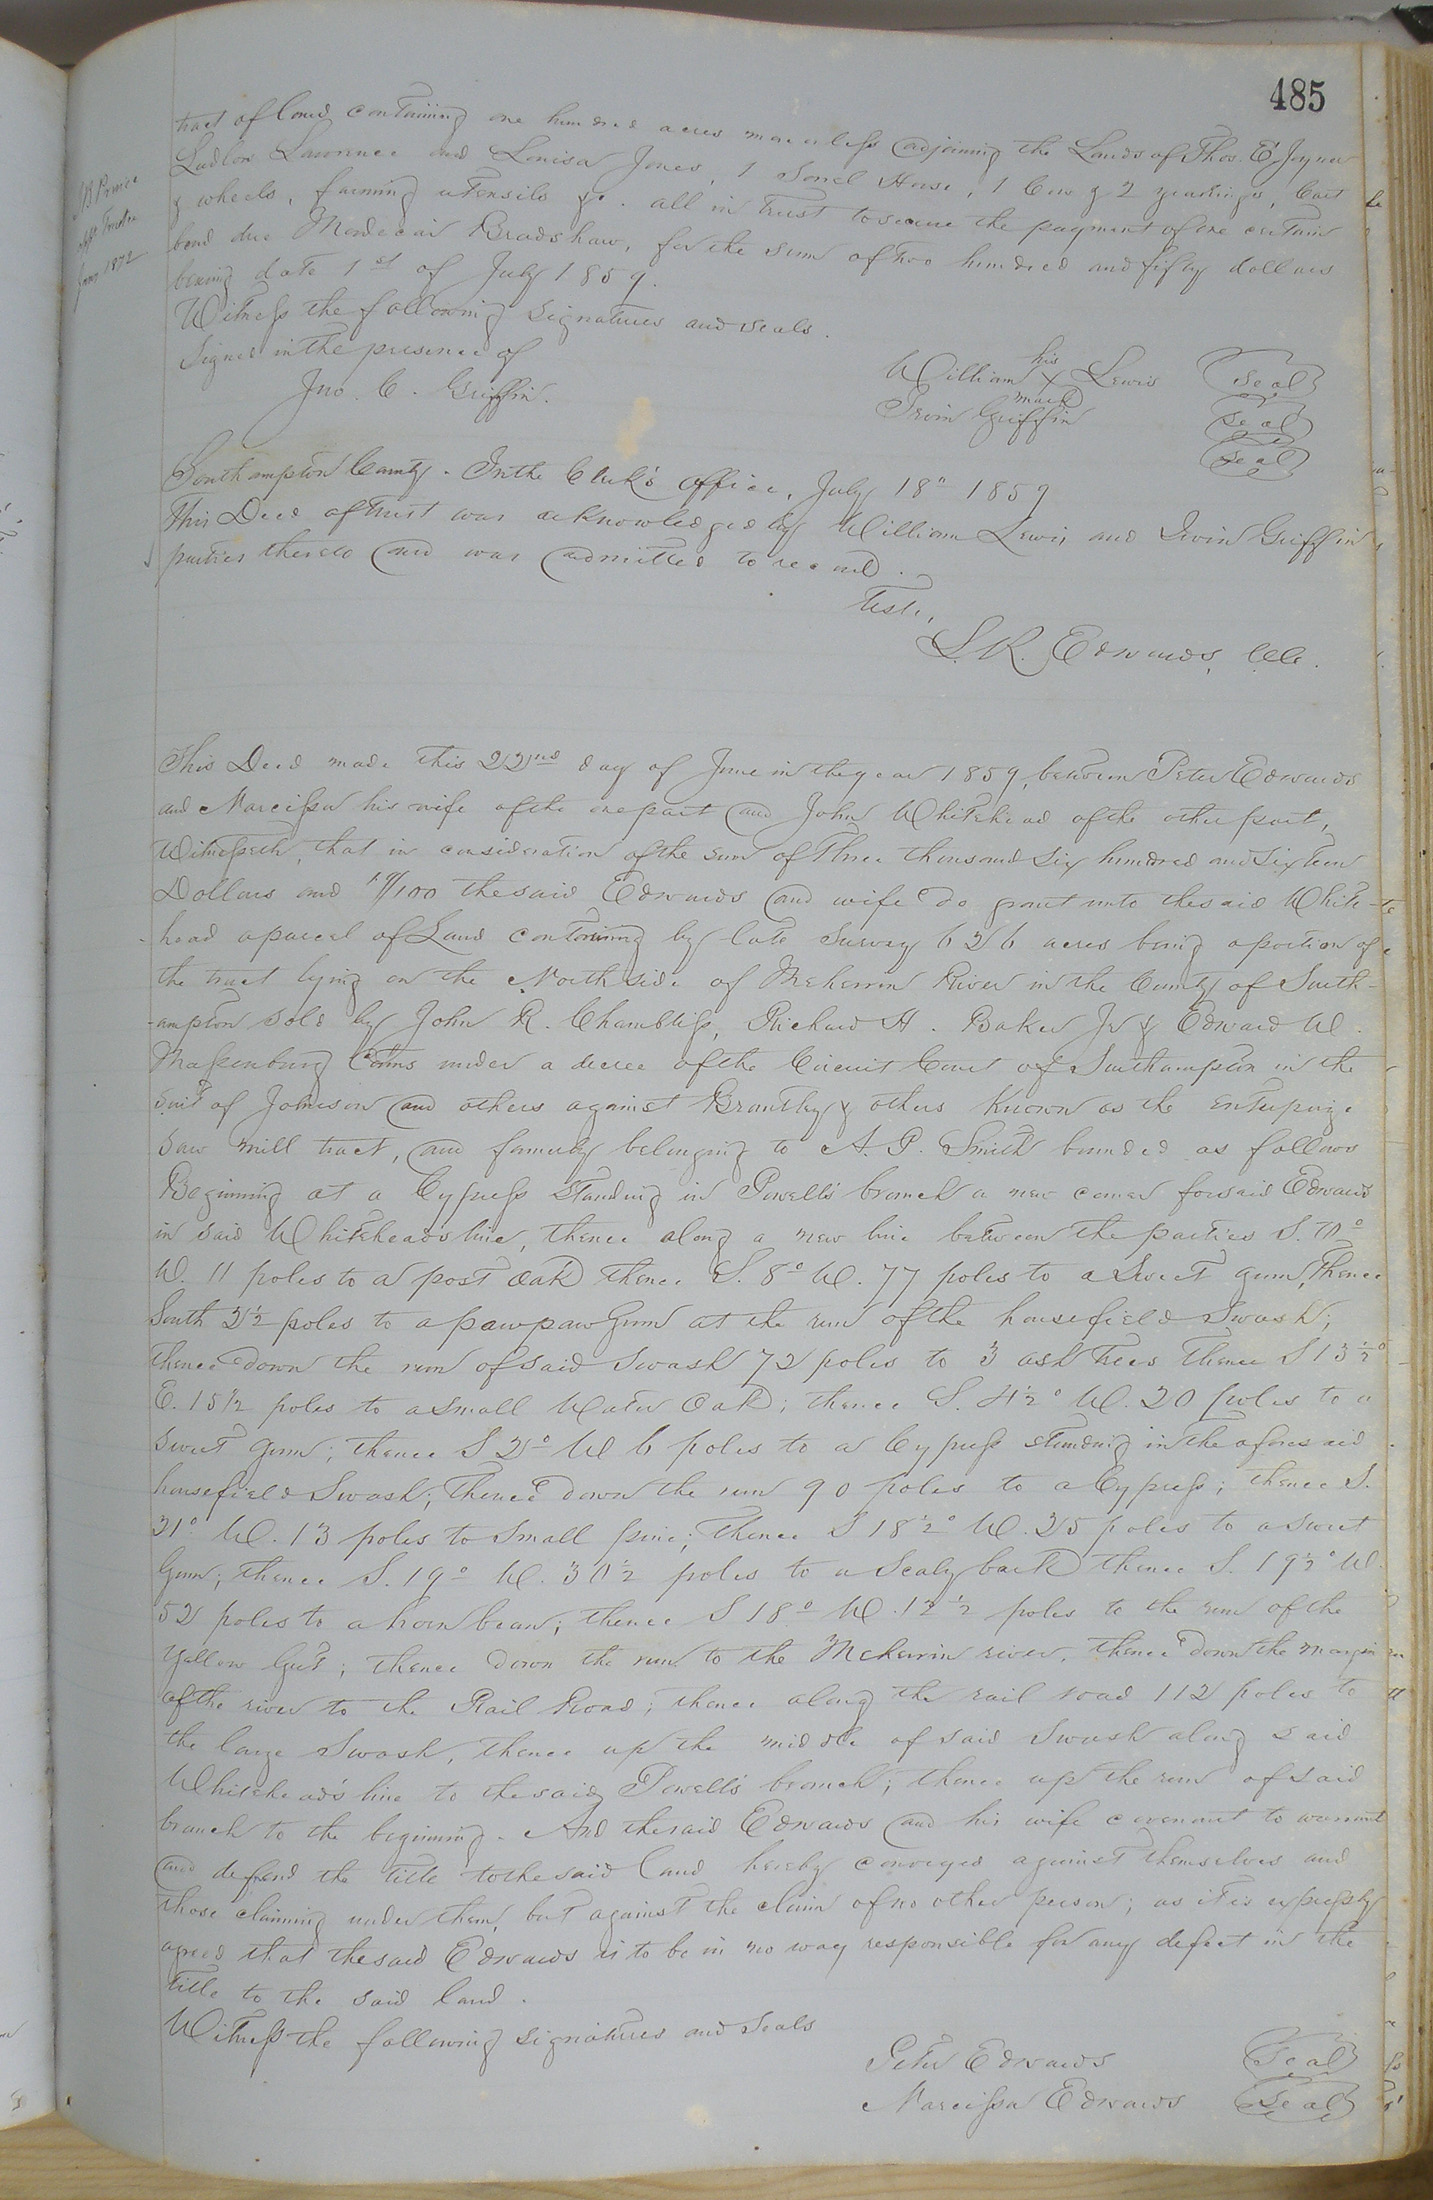 485
tract of land containing one hundred acres more or less adjoining the Lands of Thos. E Joyner
Ludlow Lawrence and Louisa Jones, 1 Sorrel Horse, 1 Cow & 2 yearlings, Cart
& wheels, farming utensils &c. all in trust to secure the payment of one certain
bond due Mordecai Bradshaw, for the sum of two hundred and fifty dollars
bearing date 1st of July 1859.
Witness the following signatures and seals.
Signed in the presence of
Jno. C. Griffin.
William his x mark Lewis Seal
Irvin Griffin Seal
Seal
Southampton County. In the Clerk's office, July 18" 1859
This Deed of trust was acknowledged by William Lewis and Irvin Griffin
parties thereto and was admitted to record.
Teste,
L. R. Edwards,
This Deed made this 22nd day of June in the year 1859, between Peter Edwards
and Narcissa his wife of the one part and John Whitehead of the other part,
Witnesseth, that in consideration of the sum of Three thousand Six hundred and Sixteen
Dollars and /100 the said Edwards and wife do grant unto the said White-
head a parcel of Land containing by late Survey 626 acres being a portion of
the tract lying on the North side of Meherrin River in the County of South-
-ampton sold by John R. Chambliss, Richard H. Baker Jr & Edward W.
Massenburg Coms under a decree of the Circuit Court of Southampton in the
suit of Johnson and others against Brantley & others Known as the enterprize
saw mill tract, and formerly belonging to A. P. Smith bounded as follows
Beginning at a Cypress Standing in Powell's branch a new corner for said Edwards
in said Whitehead's line, thence along a new line between the parties S.
W. 11 poles to a post Oak thence S. 8° W. 77 poles to a Sweet gum, Thence
South 2½ poles to a pawpaw Gum at the run of the housefield Swash;
thence down the run of said Swash 72 poles to 3 ash Trees Thence S 13½°
E. 15½ poles to a Small Water Oak; thence S. 4½° W. 20 poles to a
sweet Gum; thence S 2° W 6 poles to a Cypress standing in the aforesaid
housefield Swash; Thence down the run 90 poles to a Cypress; thence S.
21° W. 13 poles to Small pine; Thence S 18½° W. 25 poles to a sweet
Gum; thence S. 19° W. 30½ poles to a Scaly bark thence S. 19½° W.
52 poles to a horn bean; thence S 18° W. 12½ poles to the run of the
Yellow Gut; thence down the run to the Meherrin river, thence down the margin
of the river to the Rail Road; thence along the rail road 112 poles to
the large Swash, thence up the middle of said Swash along said
Whitehead's line to the said Powell's branch; thence up the run of said
branch to the beginning. And the said Edwards and his wife covenant to warrant
and defend the title to the said land hereby conveyed against themselves and
those claiming under them, but against the claim of no other person; as it is expressly
agreed that the said Edwards is to be in no way responsible for any defect in the
title to the said land.
Witness the following signatures and Seals
Peter Edwards Seal
Narcissa Edwards Seal